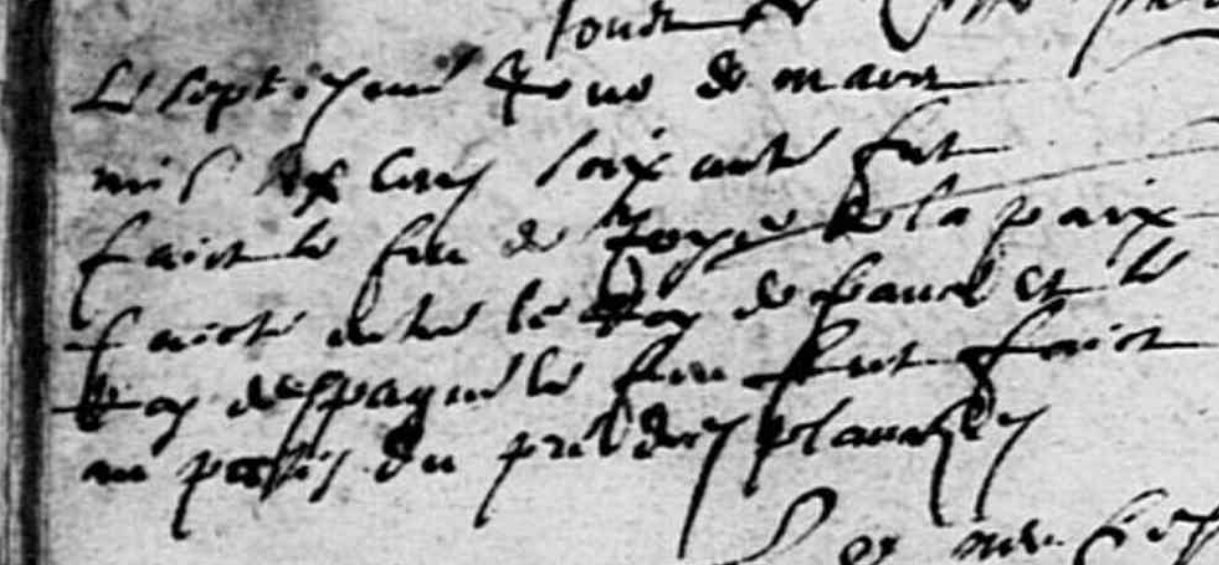 Le septiesme Jour de mars
mil six cens soixante fut
faict le feu de Joye de la paix
faicte entre le Roy de france et le
Roy despagne le feu fut faict
au pastis du pré des planches